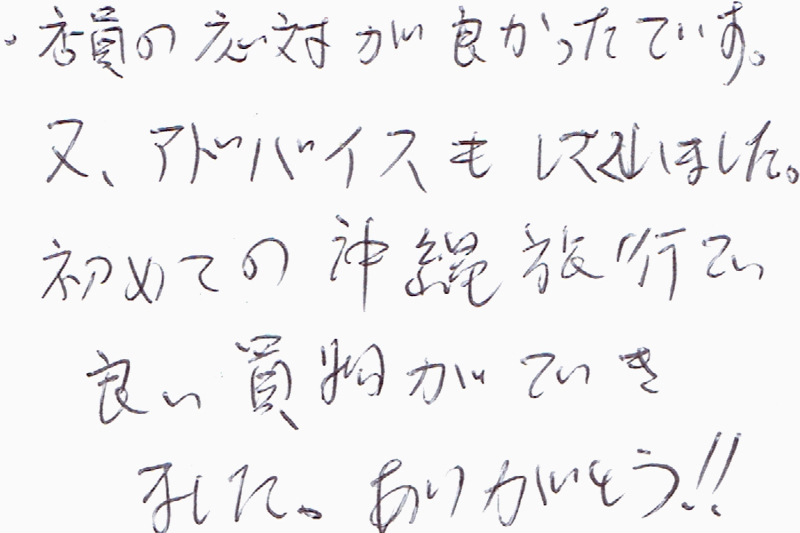 ・店員の応対が良かったです。
又、アドバイスも しました。
初めての沖縄旅行で
良い買物ができ
ました。ありがとう!!